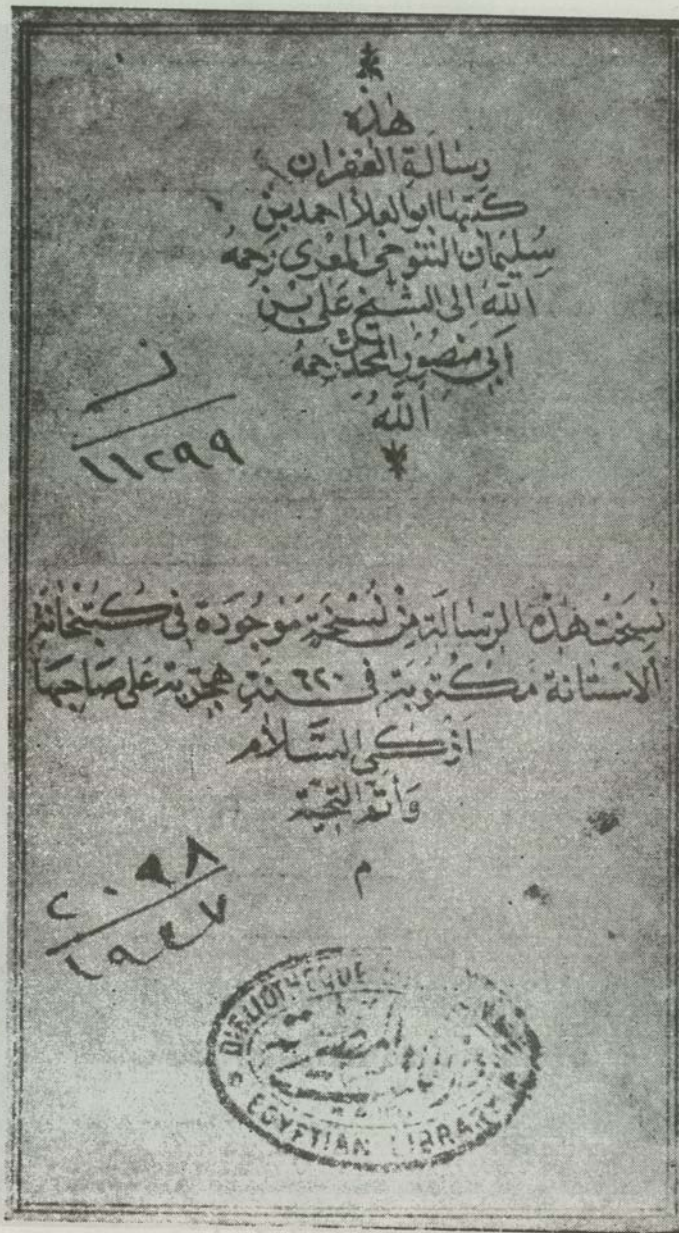 هذه
رسالة الغفران
كتبها ابو العلا احمد بن
سليمان التنوخي المعري رحمه
الله الى الشيخ علي بن
أبي منصور المحدث رحمه
الله
ز
١١٢٩٩
نسخت هذه الرسالة من نسخة موجودة في كتبخانة
الاستانة مكتوبة في سنة ٦٢٠ هجرية على صاحبها
أزكى السلام
وأتم التحية
م
٢٠٩٨
١٩٤٧
BIBLIOTHEQUE
دار الكتب المصرية
EGYPTIAN LIBRARY